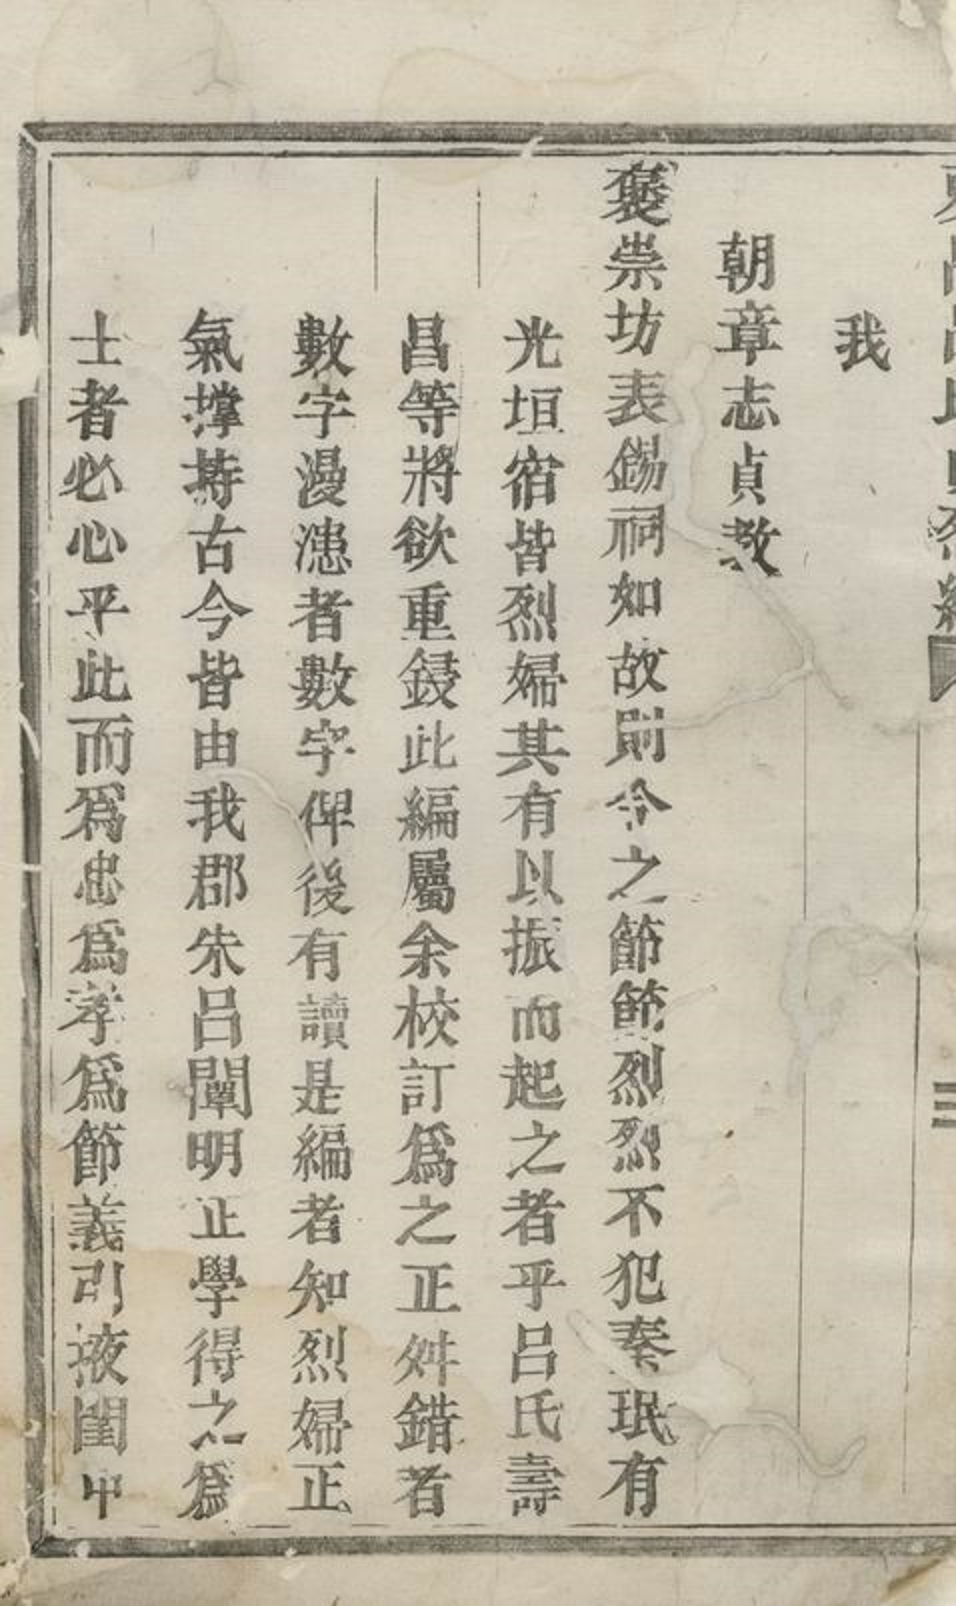 東呂呂氏貞烈編 三
我
朝章志貞教
褒崇坊表錫祠如故則令之節節烈烈不犯秦珉有
光垣宿皆烈婦其有以振而起之者乎呂氏壽
昌等將欲重鋟此編屬余校訂為之正舛錯者
數字漫漶者數字俾後有讀是編者知烈婦正
氣撐持古今皆由我郡朱呂闡明正學得之為
士者必心平此而爲忠爲孝爲節義引掖閨中